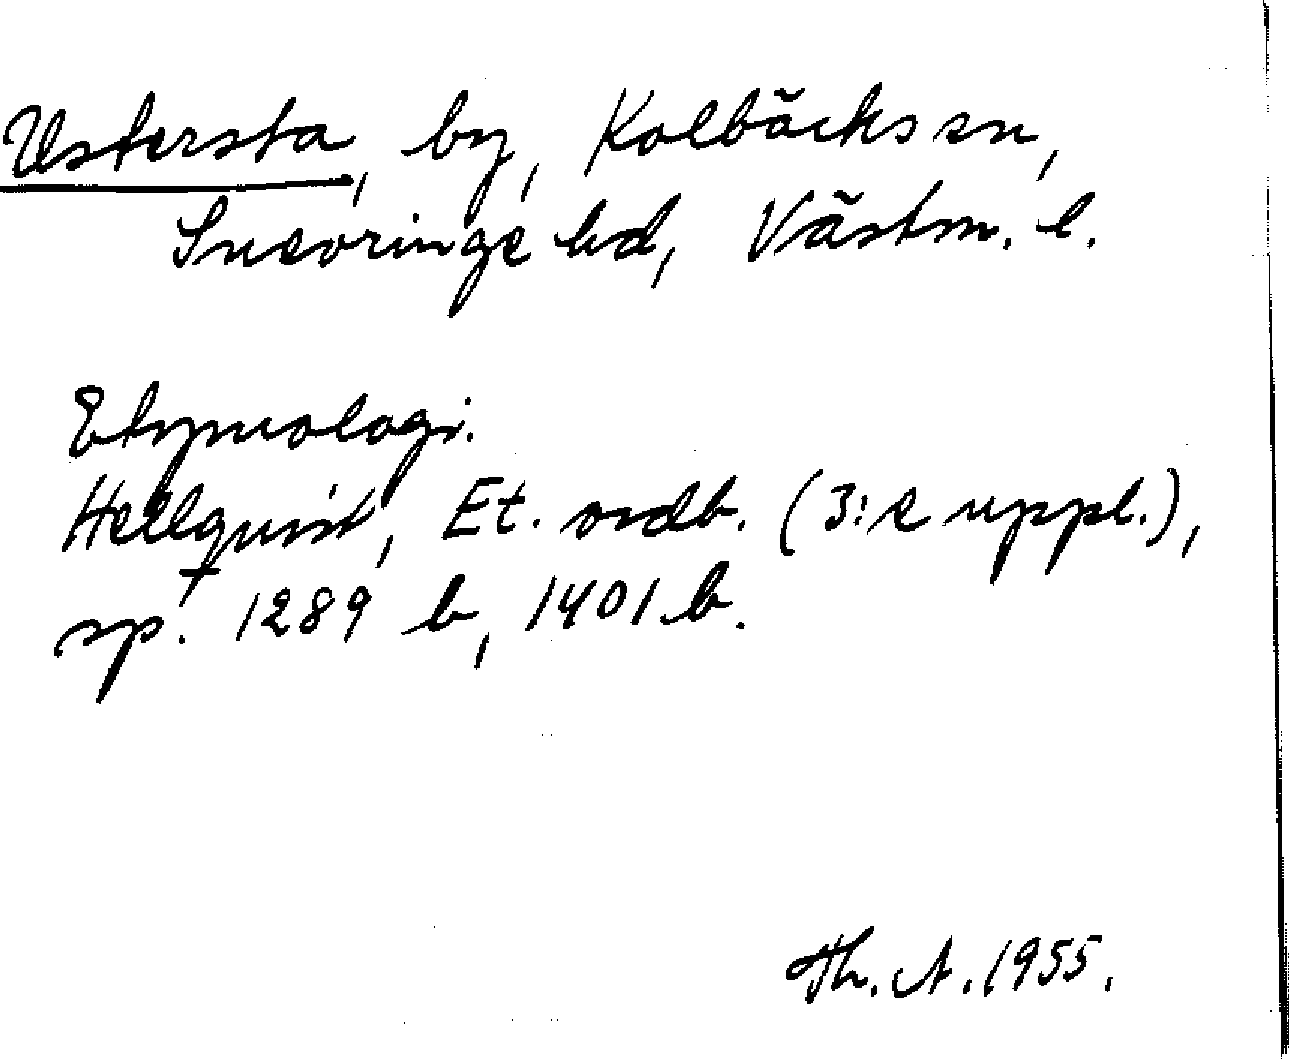 Ustersta, by, Kolbäcks sn,
Snevringe hd, Västm. l.
Etymologi.
Hellquist, Et. ordb. (3:e uppl.),
sp. 1289 b, 1401 b.
Th. A. 1955.